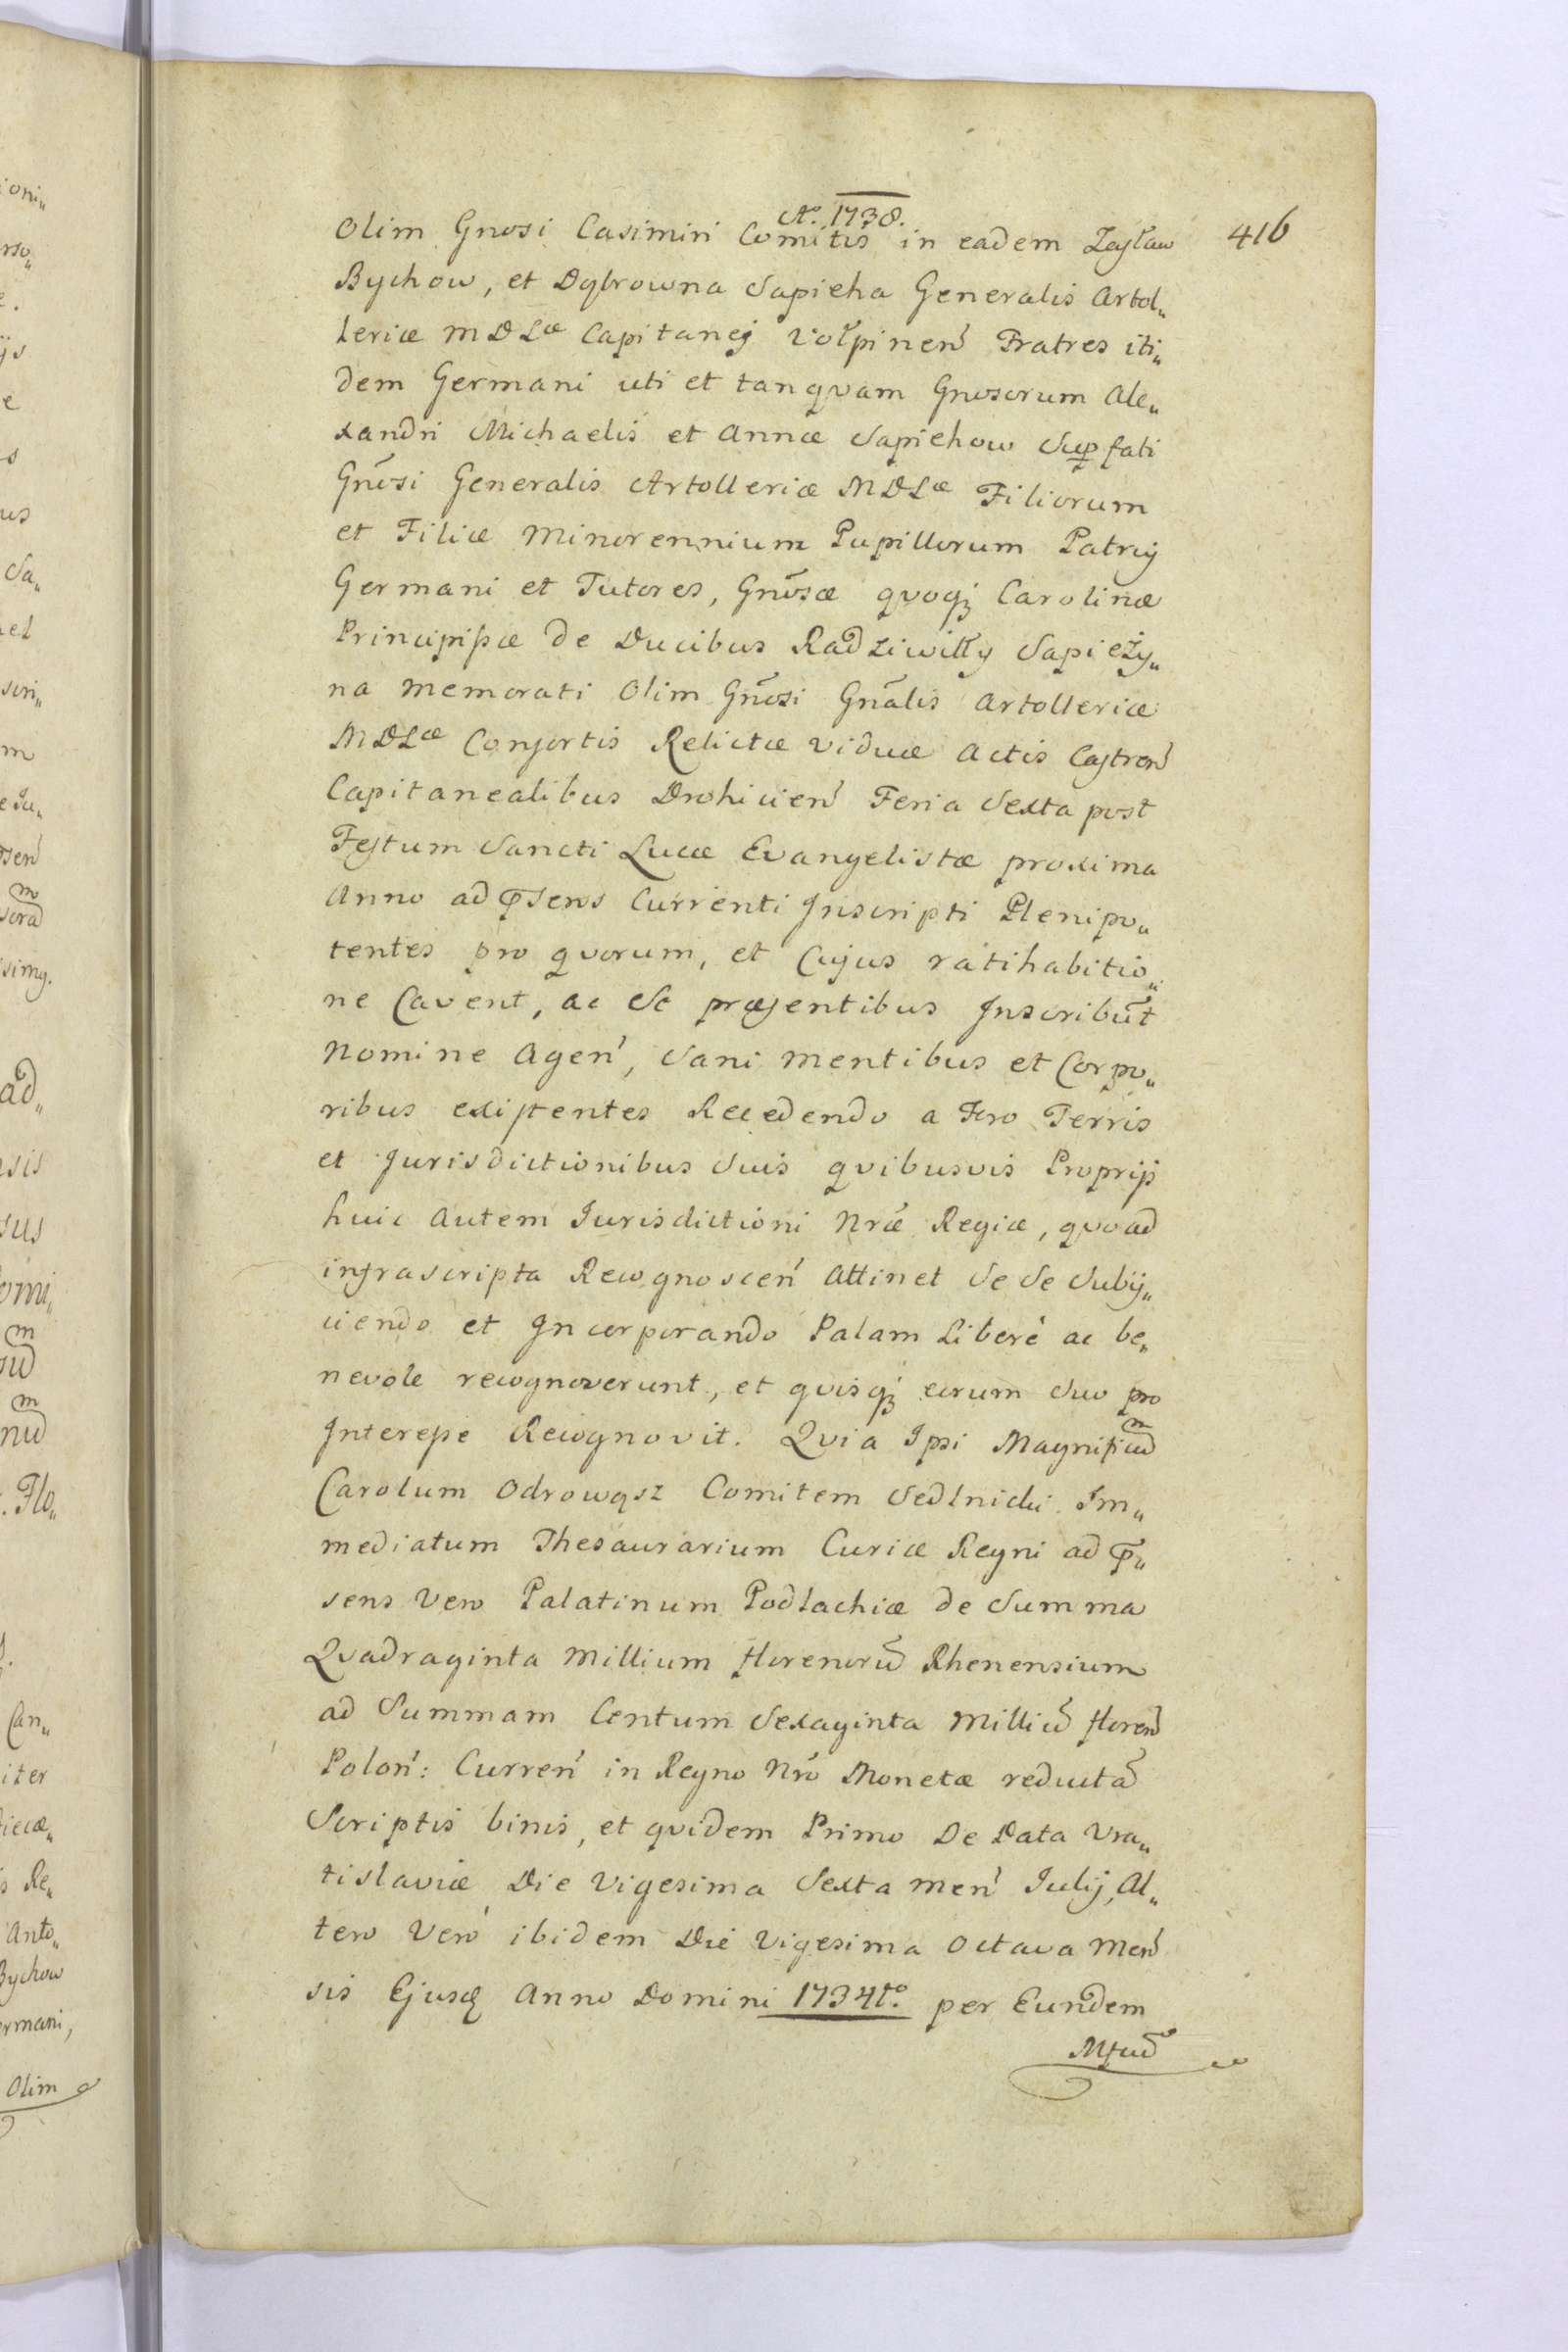 Ao. 1738.
416
Olim Gnosi Casimiri Comitis in eadem Zasław
Bychow, et Dąbrowna Sapieha Generalis Artol„
leriæ MDLæ Capitanej Wołpinen̄ Fratres iti„
dem Germani uti et tanqvam Gnosorum Ale„
xandri Michaelis et Annæ Sapiehow Sup fati
Gnōsi Generalis Artolleriæ MDLæ Filiorum
et Filiæ Minorennium Pupillorum Patrij
Germani et Tutores, Gnōsæ qvoqȝ Carolinæ
Principissæ de Ducibus Radziwiłły Sapieży„
na memorati Olim Gnōsi Gnālis Artolleriæ
MDLæ Consortis Relictæ viduæ Actis Castren̄
Capitanealibus Drohicien̄ Feria Sexta post
Festum Sancti Lucæ Evangelistæ proxima
Anno ad p̄sens Currenti Inscripti Plenipo„
tentes pro qvorum, et Cujus ratihabitio„
ne Cavent, ac Se præsentibus Inscribūt
Nomine Agen̄, Sani mentibus et Corpo„
ribus existentes Recedendo a Foro Terris
et Jurisdictionibus Suis qvibusvis Proprijs
huic Autem Jurisdictioni Nrǣ Regiæ, qvoad
infrascripta Recognoscen̄ Attinet Se Se Subij„
ciendo et Incorporando Palam Liberè ac be„
nevole recognoverunt, et qvisqȝ eorum Suo pro
Interesse Recognovit. Qvia Ipsi Magnificūm
Carolum Odrowąsz Comitem Sedlnicki Im„
mediatum Thesaurarium Curiæ Regni ad p̄„
sens Vero Palatinum Podlachiæ de Summa
Qvadraginta Millium florenorū Rhenensium
ad Summam Centum Sexaginta Milliū floren̄
Polon̄: Curren̄ in Regno Nrō Monetæ reductā
Scriptis binis, et qvidem Primo De Data Vra„
tislaviæ Die Vigesima Sexta Men̄ Julij, Al„
tero Verò ibidem Die Vigesima Octava Men̄
sis Ejusd Anno Domini 1734to. per Eundem
Mfcū